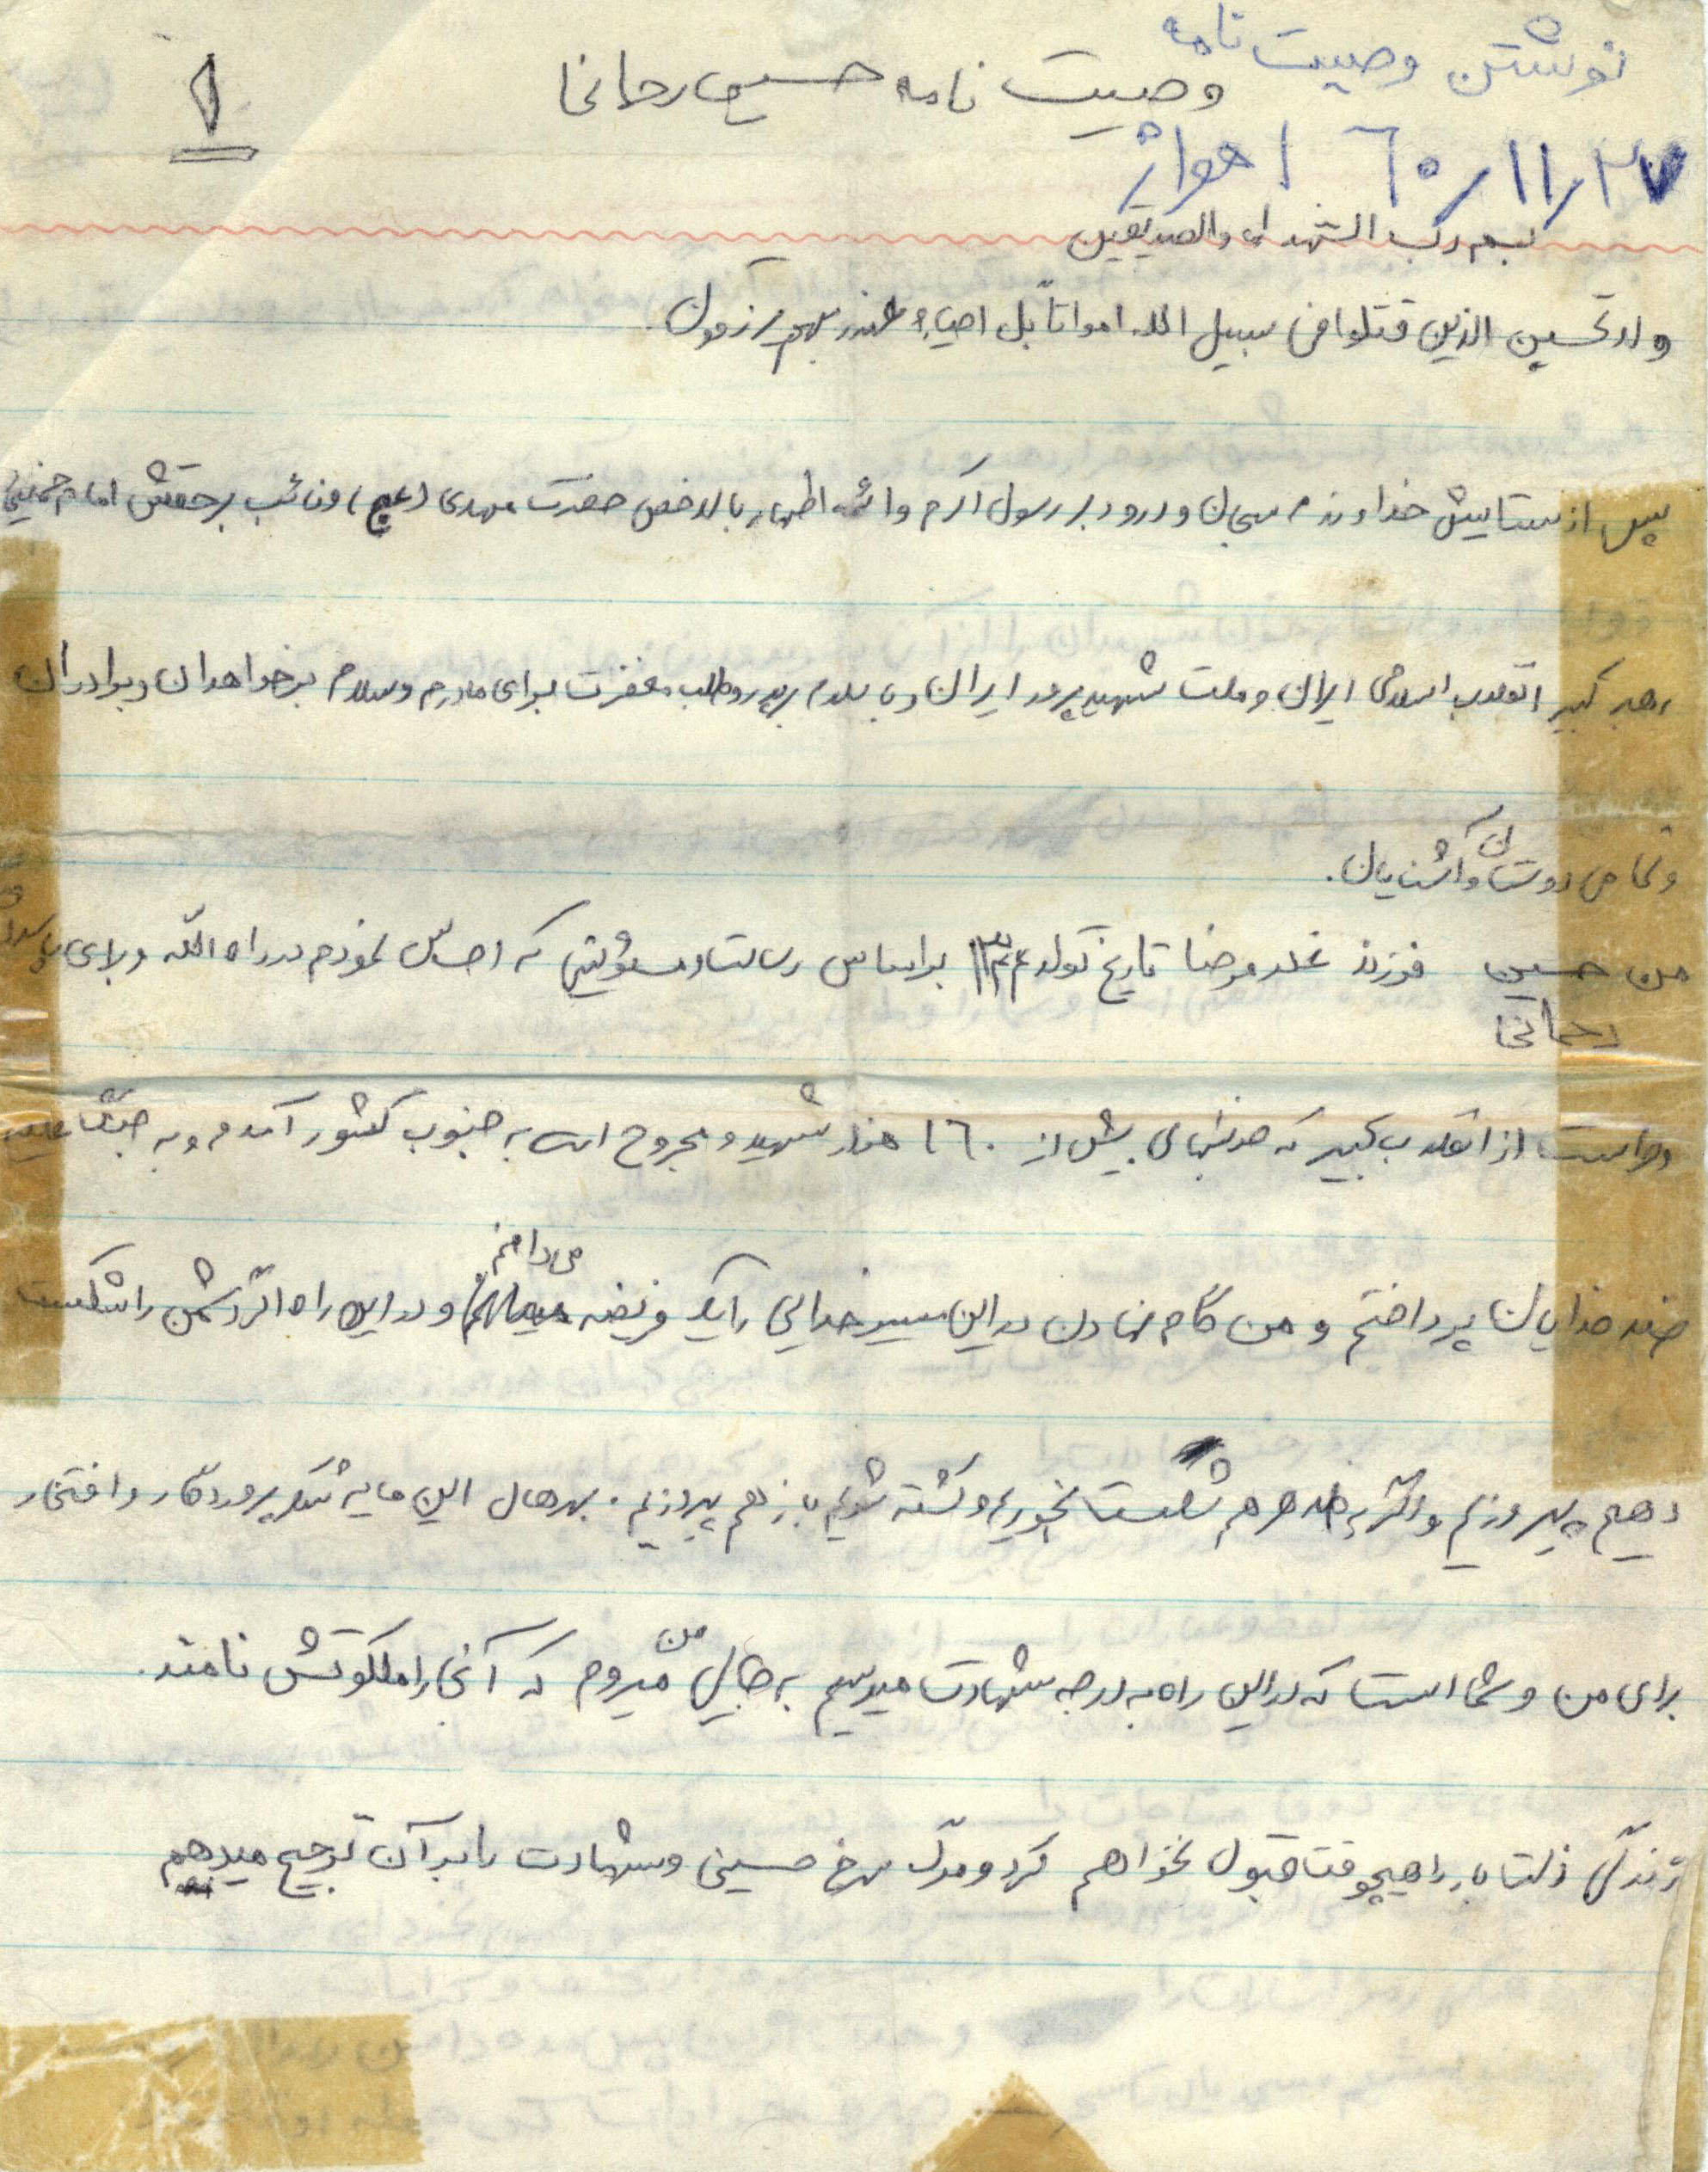 نوشتن وصیت نامه
وصیت نامه حسین رحمانی
۱
۶۰/۱۱/۲۷ اهواز
بسم رب الشهداء والصدیقین
ولاتحسبن الذین قتلوا فی سبیل الله امواتاً بل احیاء عندربهم یرزقون.
پس از ستایش خداوند سبحان و درود بر رسول اکرم وائمه اطهار بالاخص حضرت مهدی (عج) ونائب برحقش امام خمینی
رهبر کبیر انقلاب اسلامی ایران و ملت شهیدپرور ایران وبا سلام برپدر وطلب مغفرت برای مادرم وسلام برخواهران وبرادران
وتمامی دوستان وآشنایان.
من حسین رحمانی فرزند غلامرضا تاریخ تولد براساس رسالت و مسئولیتی که احساس نمودم در راه الله وبرای پاسداری
وحراست از انقلاب کبیر که خونبهای بیش از ۱۶۰ هزار شهید و مجروح است به جنوب کشور آمدم و به جنگ علیه
ضد خدایان پرداختم و من گام نهادن در این مسیر خدایی را یک فریضه می‌دانم و در این راه اگر دشمن را شکست
دهیم پیروزیم و اگر به ظاهر هم شکست بخوریم و کشته شویم باز هم پیروزیم. بهرحال این مایه شکر پروردگار و افتخار
برای من و شما است که در این راه به درجه شهادت میرسیم به جایی من میروم که آنجا را ملکوتش نامند.
زندگی ذلت بار را هیچوقت قبول نخواهم کرد و مرگ سرخ حسینی و شهادت را بر آن ترجیح میدهم